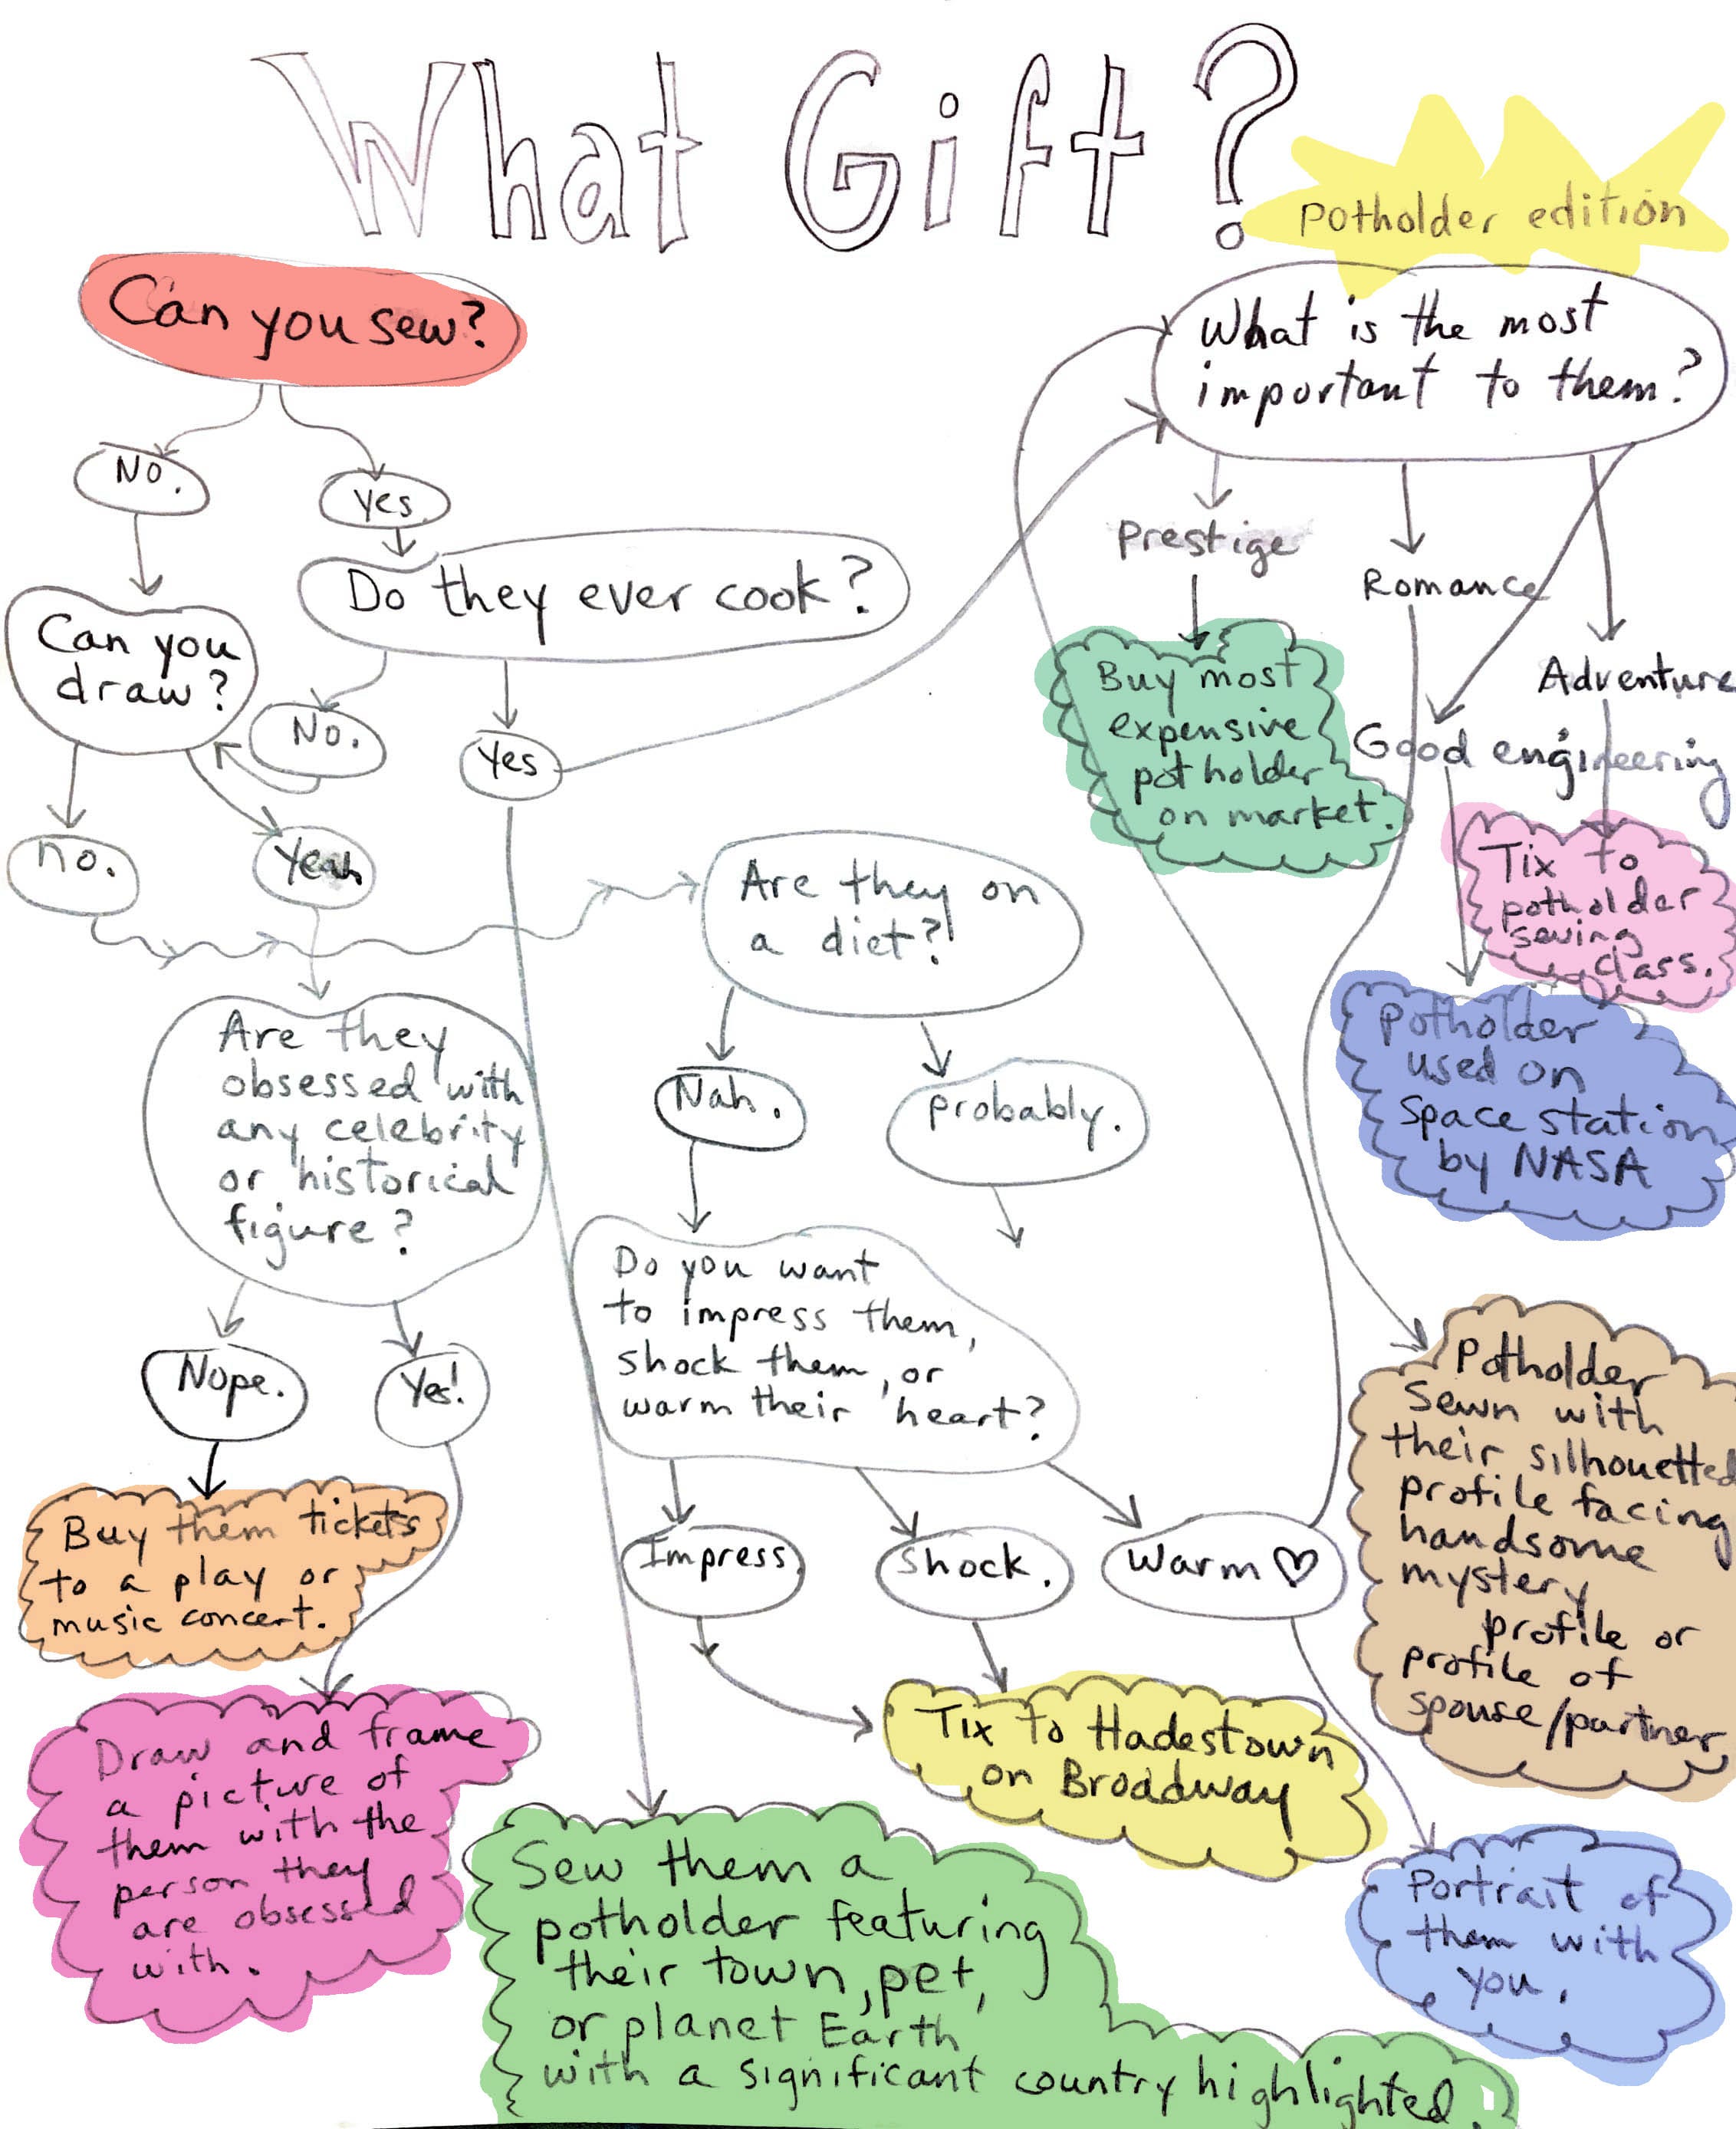 What Gift?
Potholder edition
Can you sew?
No.
yes
Can you
draw?
Do they ever cook?
No.
Yes
no.
Yeah
What is the most
important to them?
Prestige
Romance
Adventure
Good engineering
Buy most
expensive
potholder
on market.
Tix to
potholder
sewing
class.
potholder
used on
space station
by NASA
Are they on
a diet?!
Nah.
probably.
Are they
obsessed with
any celebrity
or historical
figure?
Nope.
Yes!
Do you want
to impress them,
shock them, or
warm their heart?
Impress.
Shock.
Warm ♡
Buy them tickets
to a play or
music concert.
Draw and frame
a picture of
them with the
person they
are obsessed
with.
Tix to Hadestown
on Broadway
Potholder
Sewn with
their silhouetted
profile facing
handsome
mystery
profile or
profile of
spouse/partner
Portrait of
them with
you.
Sew them a
potholder featuring
their town, pet,
or planet Earth
with a significant country highlighted.